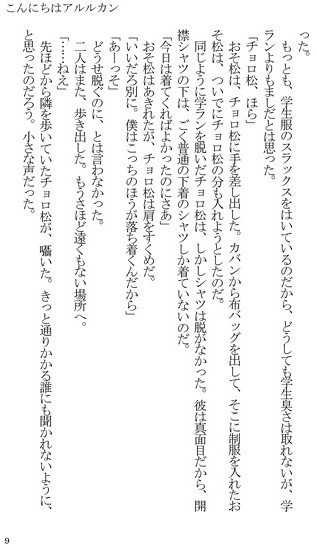 こんにちはアルルカン
った。
　もっとも、学生服のスラックスをはいているのだから、どうしても学生臭さは取れないが、学
ランよりもましだとは思った。
「チョロ松、ほら」
　おそ松は、チョロ松に手を差し出した。カバンから布バッグを出して、そこに制服を入れたお
そ松は、ついでにチョロ松の分も入れようとしたのだ。
　同じように学ランを脱いだチョロ松は、しかしシャツは脱がなかった。彼は真面目だから、開
襟シャツの下は、ごく普通の下着のシャツしか着ていないのだ。
「今日は着てくればよかったのにさあ」
　おそ松はあきれたが、チョロ松は肩をすくめだ。
「いいだろ別に。僕はこっちのほうが落ち着くんだから」
「あーっそ」
　どうせ脱ぐのに、とは言わなかった。
　二人はまた、歩き出した。もうさほど遠くもない場所へ。
「……ねえ」
　先ほどから隣を歩いていたチョロ松が、囁いた。きっと通りかかる誰にも聞かれないように、
と思ったのだろう。小さな声だった。
9